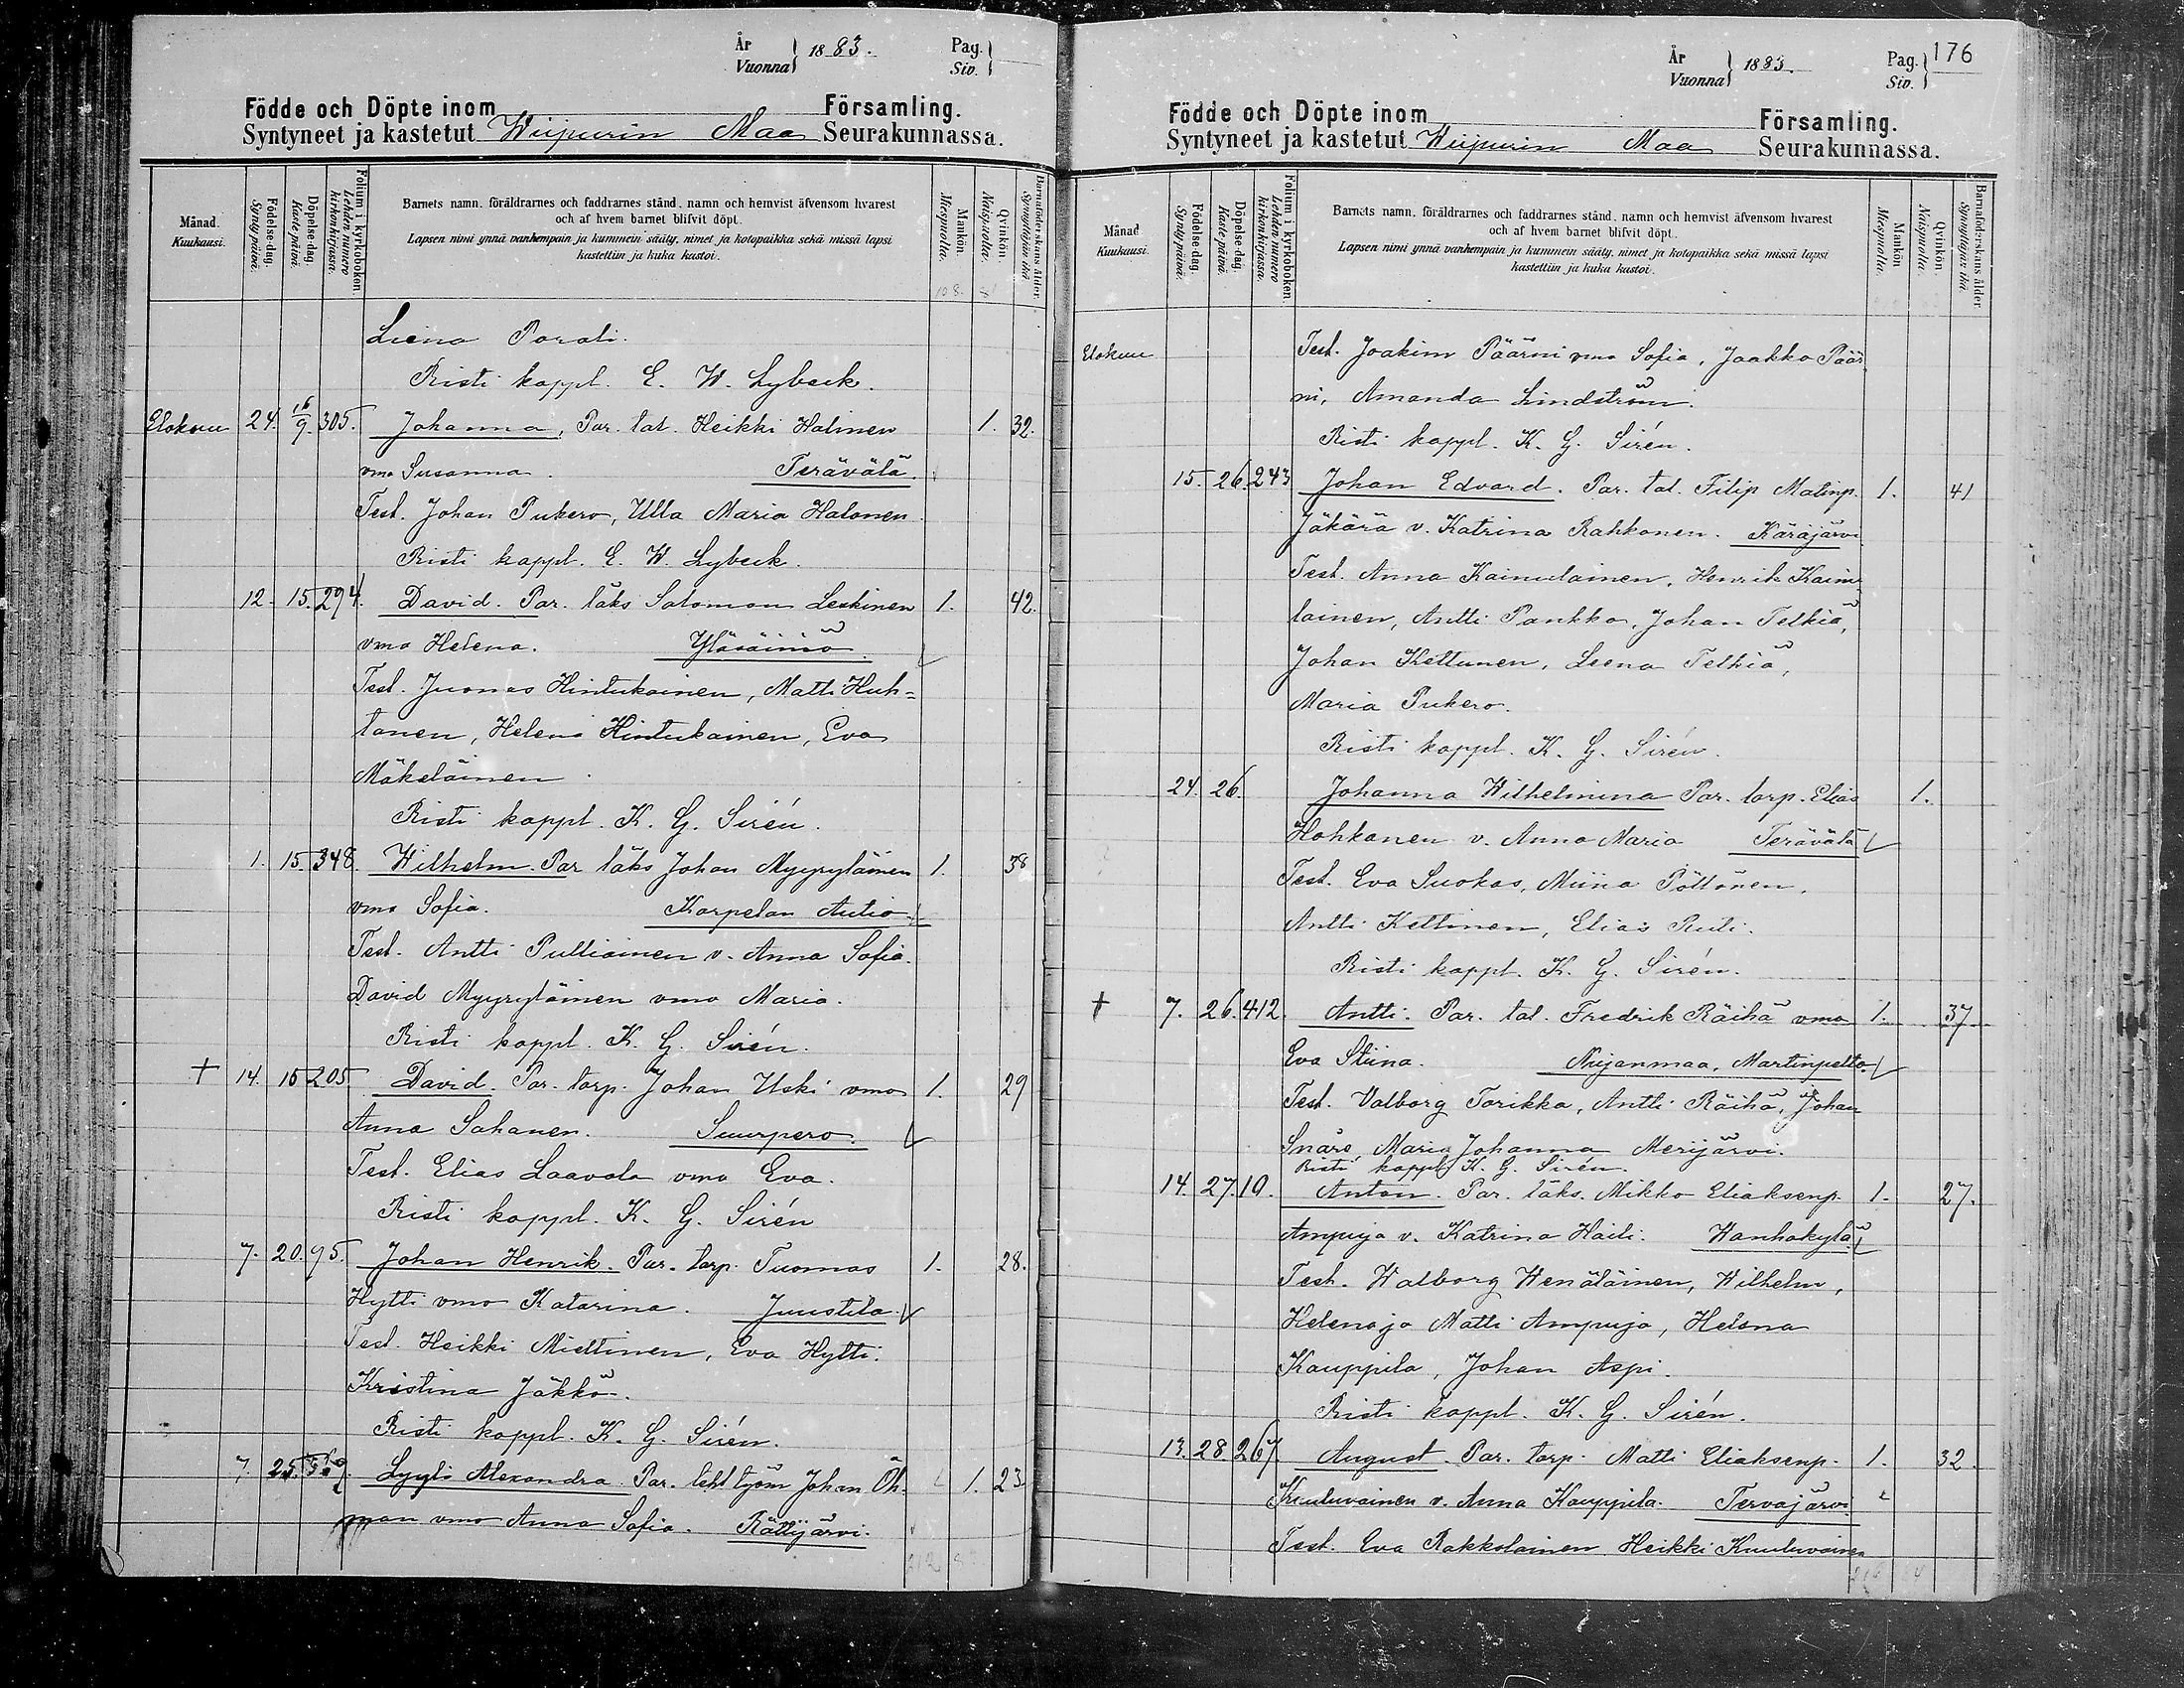 År
Vuonna } 1883.
Pag.
Siv. }
Födde och Döpte inom Församling.
Syntyneet ja kastetut Wiipurin Maa Seurakunnassa.
Månad. Kuukausi.
Födelse-dag. Synty päivä.
Döpelse-dag. Kaste päivä.
Folium i kyrkoboken. Lehden numero kirkonkirjassa.
Barnets namn, föräldrarnes och faddrarnes stånd, namn och hemvist äfvensom hvarest
och af hvem barnet blifvit döpt.
Lapsen nimi ynnä vanhempain ja kummein sääty, nimet ja kotopaikka sekä missä lapsi
kastettiin ja kuka kastoi.
Mankön. Miespuolta.
Qvinkön. Naispuolta.
Barnaföderskans ålder. Synnyttäjän ikä.
Liena Porali.
Risti kappl. E. W. Lybeck.
Elokuu 24. 16/9. 305. Johanna, Par. tal. Heikki Halinen 1. 32.
vmo Susanna. Terävälä.
Test. Johan Pukero, Ulla Maria Halonen
Risti kappl. E. W. Lybeck.
12. 15. 294. David. Par. läks Salomon Leskinen 1. 42.
vmo Helena. Yläsäiniö.
Test. Juonas Hintukainen, Matti Huh-
tanen, Helena Hintukainen, Eva
Mäkeläinen.
Risti kappl. K. G. Sirén.
1. 15. 348. Wilhelm. Par läks Johan Myyryläinen 1. 38
vmo Sofia. Karpelan Autio
Test. Antti Pulliainen v. Anna Sofia.
David Myyryläinen vmo Maria.
Risti kappl. K. G. Sirén.
+ 14. 15 205 David. Par. torp. Johan Uski vmo 1. 29
Anna Sahanen. Suurpero.
Test. Elias Laavola vmo Eva.
Risti kappl. K. G. Sirén
7. 20. 95. Johan Henrik. Par. torp. Tuomas 1. 28.
Hytti vmo Katarina. Juustila.
Test. Heikki Miettinen, Eva Hytti.
Kristina Jäkkö.
Risti kappl. K. G. Sirén.
7. 25. Lyyli Alexandra. Par. teht työm Johan Öh- 1. 23
man vmo Anna Sofia. Rättijärvi.
År
Vuonna } 1883.
Pag.
Siv. } 176
Födde och Döpte inom Församling.
Syntyneet ja kastetut Wiipurin Maa Seurakunnassa.
Månad Kuukausi.
Födelse-dag. Synty päivä.
Döpelse-dag. Kaste päivä.
Folium i kyrkoboken Lehden numero kirkonkirjassa.
Barnets namn, föräldrarnes och faddrarnes stånd, namn och hemvist äfvensom hvarest
och af hvem barnet blifvit döpt.
Lapsen nimi ynnä vanhempain ja kummein sääty, nimet ja kotopaikka sekä missä lapsi
kastettiin ja kuka kastoi.
Mankön Miespuolta.
Qvinkön Naispuolta.
Barnaföderskans ålder Synnyttäjän ikä.
Elokuu Test. Joakim Päärni vmo Sofia, Jaakko Päär
ni, Amanda Lindström.
Risti kappl. K. G. Sirén.
15. 26. 243 Johan Edvard. Par. tal. Filip Matinp. 1. 41
Jäkärä v. Katrina Rahkonen. Käräjärvi
Test. Anna Kainulainen, Henrik Kainu
lainen, Antti Pankko, Johan Telkiä,
Johan Kettunen, Leena Telkiä,
Maria Pukero.
Risti kappl. K. G. Sirén.
24. 26. Johanna Wilhelmina Par. torp. Elias 1.
Hohkanen v. Anna Maria Terävälä
Test. Eva Suokas, Miina Pöllönen,
Antti Kettinen, Elias Ruti.
Risti kappl. K. G. Sirén.
+ 7. 26. 412. Antti. Par. tal. Fredrik Räihä vmo 1. 37
Eva Stiina. Nuijanmaa, Martinpelto
Test. Valborg Torikka, Antti Räihä, Johan
Snäre, Maria Johanna Merijärvi.
Risti kappl K. G. Sirén.
14. 27. 10. Anton. Par. läks. Mikko Eliaksenp. 1. 27.
Ampuja v. Katrina Haili. Wanhakylä
Test. Walborg Wenäläinen, Wilhelm,
Helena ja Matti Ampuja, Helena
Kauppila, Johan Aspi.
Risti kappl. K. G. Sirén.
13. 28. 267 August. Par. torp. Matti Eliaksenp. 1. 32.
Kuuluvainen v. Anna Kauppila. Tervajärvi
Test. Eva Rakkolainen Heikki Kuuluvainen